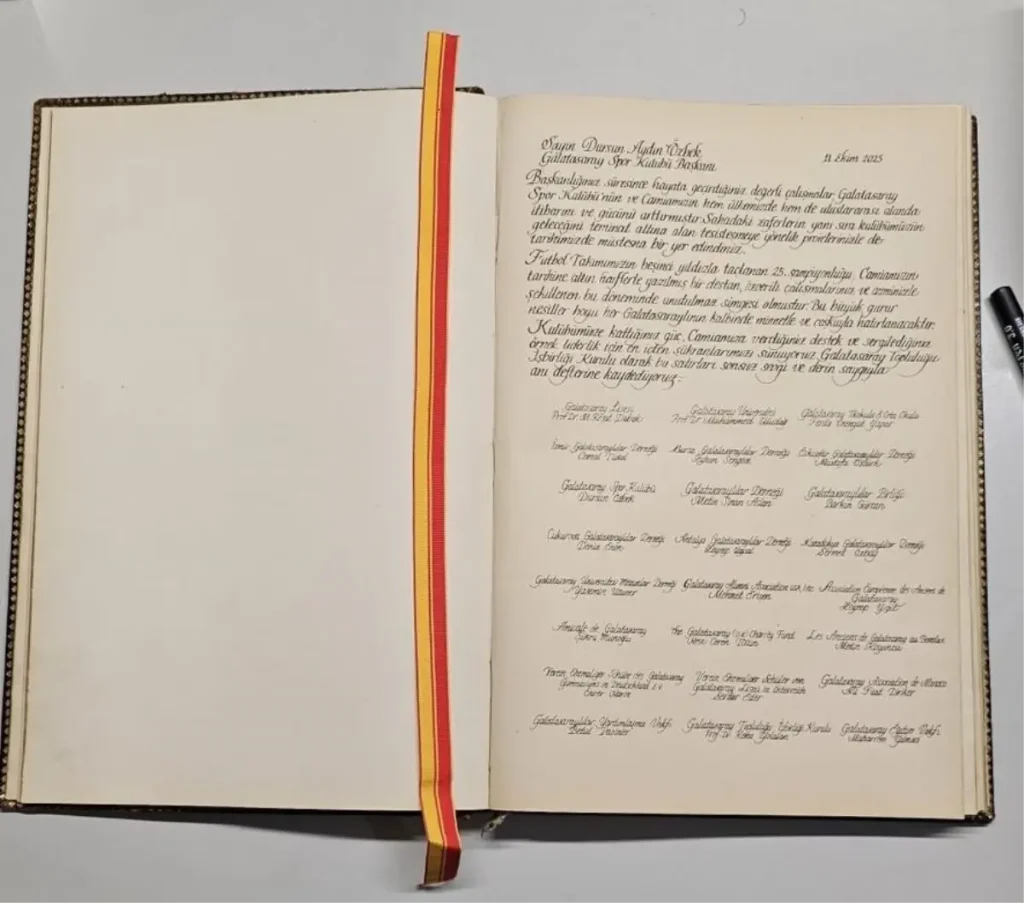 Sayın Dursun Aydın Özbek, 11 Ekim 2025
Galatasaray Spor Kulübü Başkanı
Başkanlığınız süresince hayata geçirdiğiniz değerli çalışmalar, Galatasaray
Spor Kulübü'nün ve Camiamızın hem ülkemizde hem de uluslararası alanda
itibarını ve gücünü arttırmıştır. Sahadaki zaferlerin yanı sıra kulübümüzün
geleceğini teminat altına alan tesisleşmeye yönelik projelerinizle de
tarihimizde müstesna bir yer edindiniz.
Futbol Takımımızın beşinci yıldızla taçlanan 25. şampiyonluğu, Camiamızın
tarihine altın harflerle yazılmış bir destan, özverili çalışmalarınız ve azminizle
şekillenen bu döneminde unutulmaz simgesi olmuştur. Bu büyük gurur
nesiller boyu her Galatasaraylının kalbinde minnetle ve coşkuyla hatırlanacaktır.
Kulübümüze kattığınız güç, Camiamıza verdiğiniz destek ve sergilediğiniz
örnek liderlik için en içten şükranlarımızı sunuyoruz. Galatasaray Topluluğu
İşbirliği Kurulu olarak bu satırları sonsuz sevgi ve derin saygıyla
anı defterine kaydediyoruz.
Galatasaray Lisesi Galatasaray Üniversitesi Galatasaray İlkokulu & Orta Okulu
Prof. Dr. M. Prof. Dr. Muhammed Uludağ
İzmir Galatasaraylılar Derneği Bursa Galatasaraylılar Derneği Eskişehir Galatasaraylılar Derneği
Cemal Ceyhun Mustafa
Galatasaray Spor Kulübü Galatasaraylılar Derneği Galatasaraylılar Birliği
Dursun Özbek Metin Sinan Aslan
Çukurova Galatasaraylılar Derneği Antalya Galatasaraylılar Derneği Kapadokya Galatasaraylılar Derneği
Zeynep
Galatasaray Üniversitesi Mezunlar Derneği Galatasaray Alumni Association USA, Inc. Association Européenne des Anciens de
Galatasaray
Yasemin Mehmet Zeynep Yiğit
Amicale de Galatasaray The Galatasaray (UK) Charity Fund Les Anciens de Galatasaray au Benelux
Şükrü Ceren Metin
Verein Ehemaliger Schüler des Galatasaray Verein Ehemaliger Schüler von Galatasaray Association de Monaco
Gymnasiums in Deutschland e.V. Galatasaray Lisesi in Österreich Ali Fuat
Serdar
Galatasaraylılar Yardımlaşma Vakfı Galatasaray Topluluğu İşbirliği Kurulu Galatasaray Eğitim Vakfı
Betül Prof. Dr. Muharrem